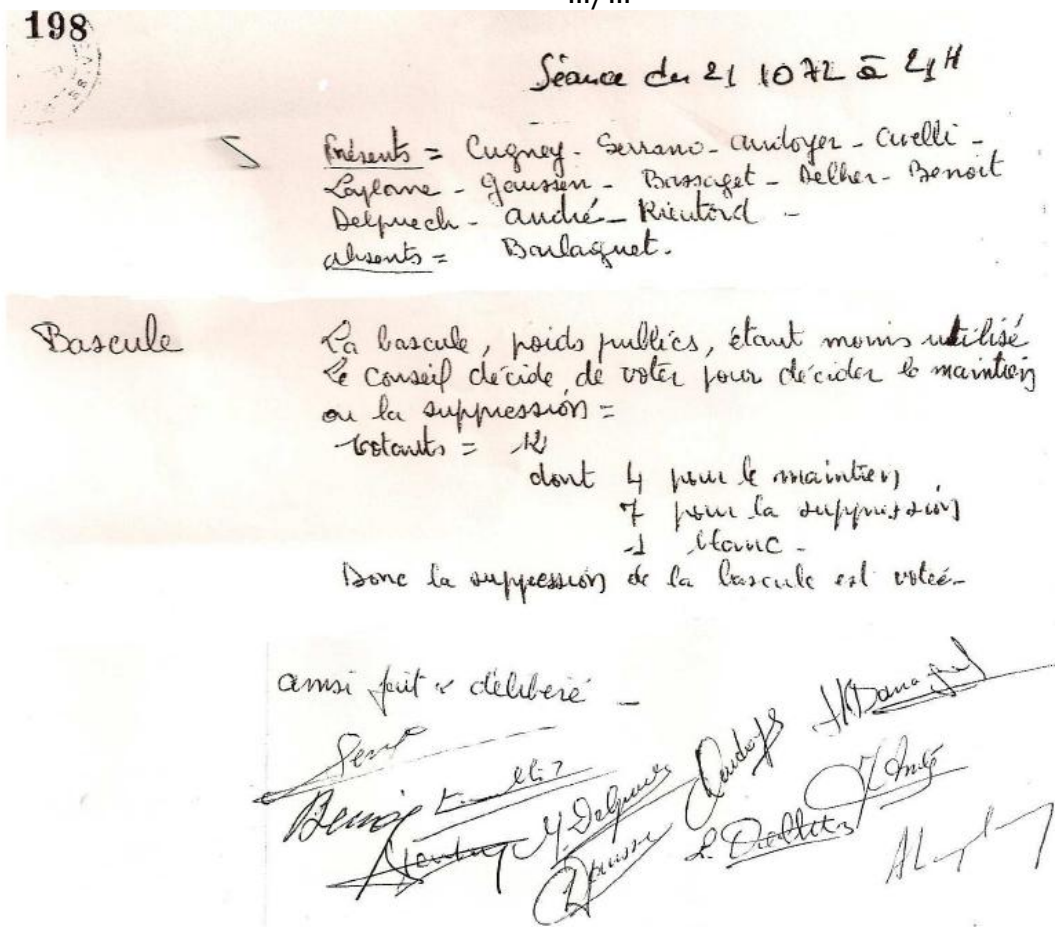 .../...
198
Séance du 21 10 72 à 21H
Présents = Cugney - Serrano - Audoyer - Civelli -
Laplane - Gaussen - Bassaget - Delher - Benoit
Delpuech - André - Rieutord -
absents = Boulaguet.
Bascule
La bascule, poids publics, étant moins utilisé
Le conseil décide de voter pour décider le maintien
ou la suppression =
Votants = 12
dont 4 pour le maintien
7 pour la suppression
1 blanc -
Donc la suppression de la bascule est votée -
ainsi fait & délibéré -
Benoit